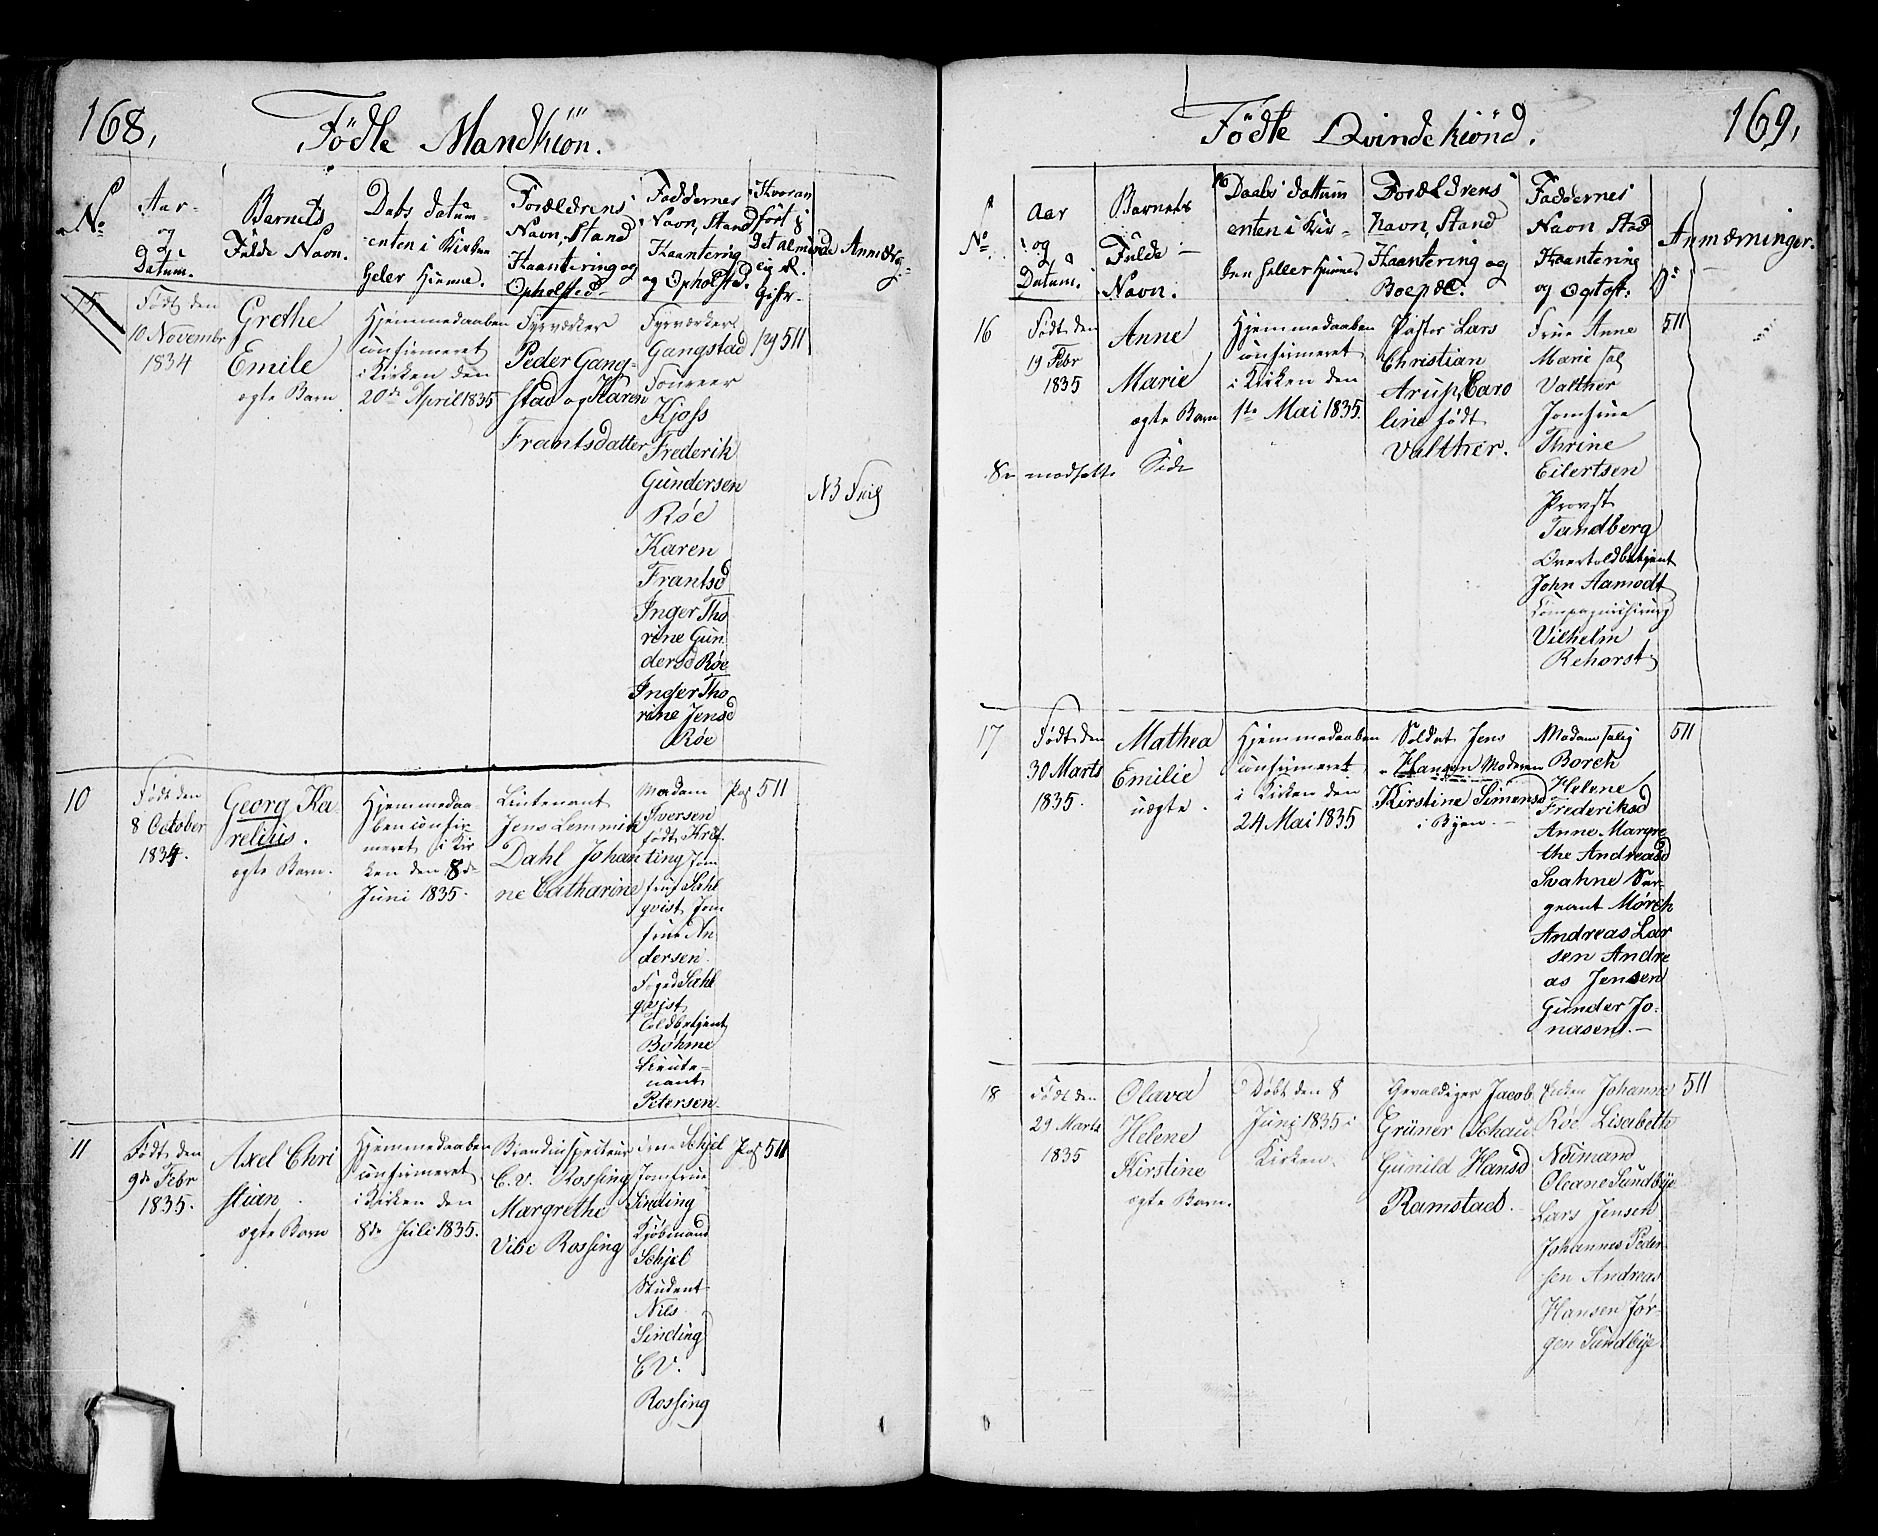 168,
Födte Mandkiön.
No
Aar
og
Datum.
Barnets
Fulde Navn.
Dabs datum
enten i Kirken
heler Hiemme.
Forældrens
Navn, Stand
Haantering og
Opholsted.
Faddernes
Navn, Stand
Haantering
og Opholsted.
Hvoran
fört i
det almin
elig R.
Gistr.
Anmærg
15
Födt den
10 Novembr
1834
Grethe
Emilie
ægte Barn
Hjemmedaaben
confirmeret
i Kirken den
20de April 1835
Fyrværker
Peder Gang-
stad og Karen
Frantsdatter
Fyrværker
Gangstad
Foureer
Kjoss
Frederik
Gundersen
Röe
Karen
Frantsd
Inger Tho
rine Gun
dersd Röe
Inger Tho
rine Jensd
Röe
pag 511
NB
10
Födt den
8 October
1834.
Georg Ka
relius.
ægte Barn.
Hjemmedaa-
ben confir
meret i Kir
ken den 8de
Juni 1835.
Lieutenant
Jens Lemmik
Dahl Johan
ne Catharine
Madam
Iversen
födt Kref
ting Jom
fru Sehl
qvist Jom
frue An
dersen.
Foged Sæhl
qvist
Toldbetjent
Böhme
Lieute-
nant
Petersen.
Pag 511
11
Födt den
9de Febr
1835.
Axel Chri
stian
ægte Barn
Hjemmedaaben
confirmeret
i Kirken den
8de Juli 1835.
Brandinspecteur
C. V. Rossing
Margrethe
Vibe Rossing
Frue Schjel
Jomfrue
Sinding
Kjöbmand
Schjel
Student
Nils
Sinding
C V.
Rossing
Pag 511
169,
Födte Qvindekiönd.
No.
Aar
og
Datum.
Barnets
Fulde
Navn.
Daabs dattum
enten i Kir-
ken heller Hiemme
Forældrens
Navn, Stand
Haantering og
Boepæl.
Faddernes
Navn Stad
Haantering
og
Anmærninger.
16
Födt den
19 Febr
1835
Anne
Marie
ægte Barn
Hjemmedaaben
confirmeret
i Kirken den
1ste Mai 1835.
Pastor Lars
Christian
Arup, Caro
line födt
Valther.
Frue Anne
Marie sal
Valther
Jomfrue
Thrine
Eilertsen
Provst
Tandberg
Overtoldbetjent
John Aamodt
Compagnichirurg
Vilhelm
Rehorst
511
Se modsatte Side
17
Födt den
30 Marts
1835.
Mathea
Emilie
uægte.
Hjemmedaaben
confirmeret
i Kirken den
24 Mai 1835
Soldat Jens
Hansen Moderen
Kirstine Simensd
i Byen.
Madam salig
Borch
Helene
Frederiksd
Anne Margre
the Andreasd
Svahne Ser-
geant Mörch
Andreas Lar
sen Andre
as Jensen
Gunder Jo-
nasen.
511
18
Födt den
29 Marts
1835
Olava
Helene
Kirstine
ægte Barn.
Döbt den 8
Juni 1835 i
Kirken.
Gevaldiger Jacob
Grüner Schau
Gunild Hansd
Ramstad.
Enken Johanne
Röe Lisabette
Neimand
Oleane Sundbye
Lars Jensen
Johannes Peder-
sen Andreas
Hansen Jör-
gen Sundbye.
511